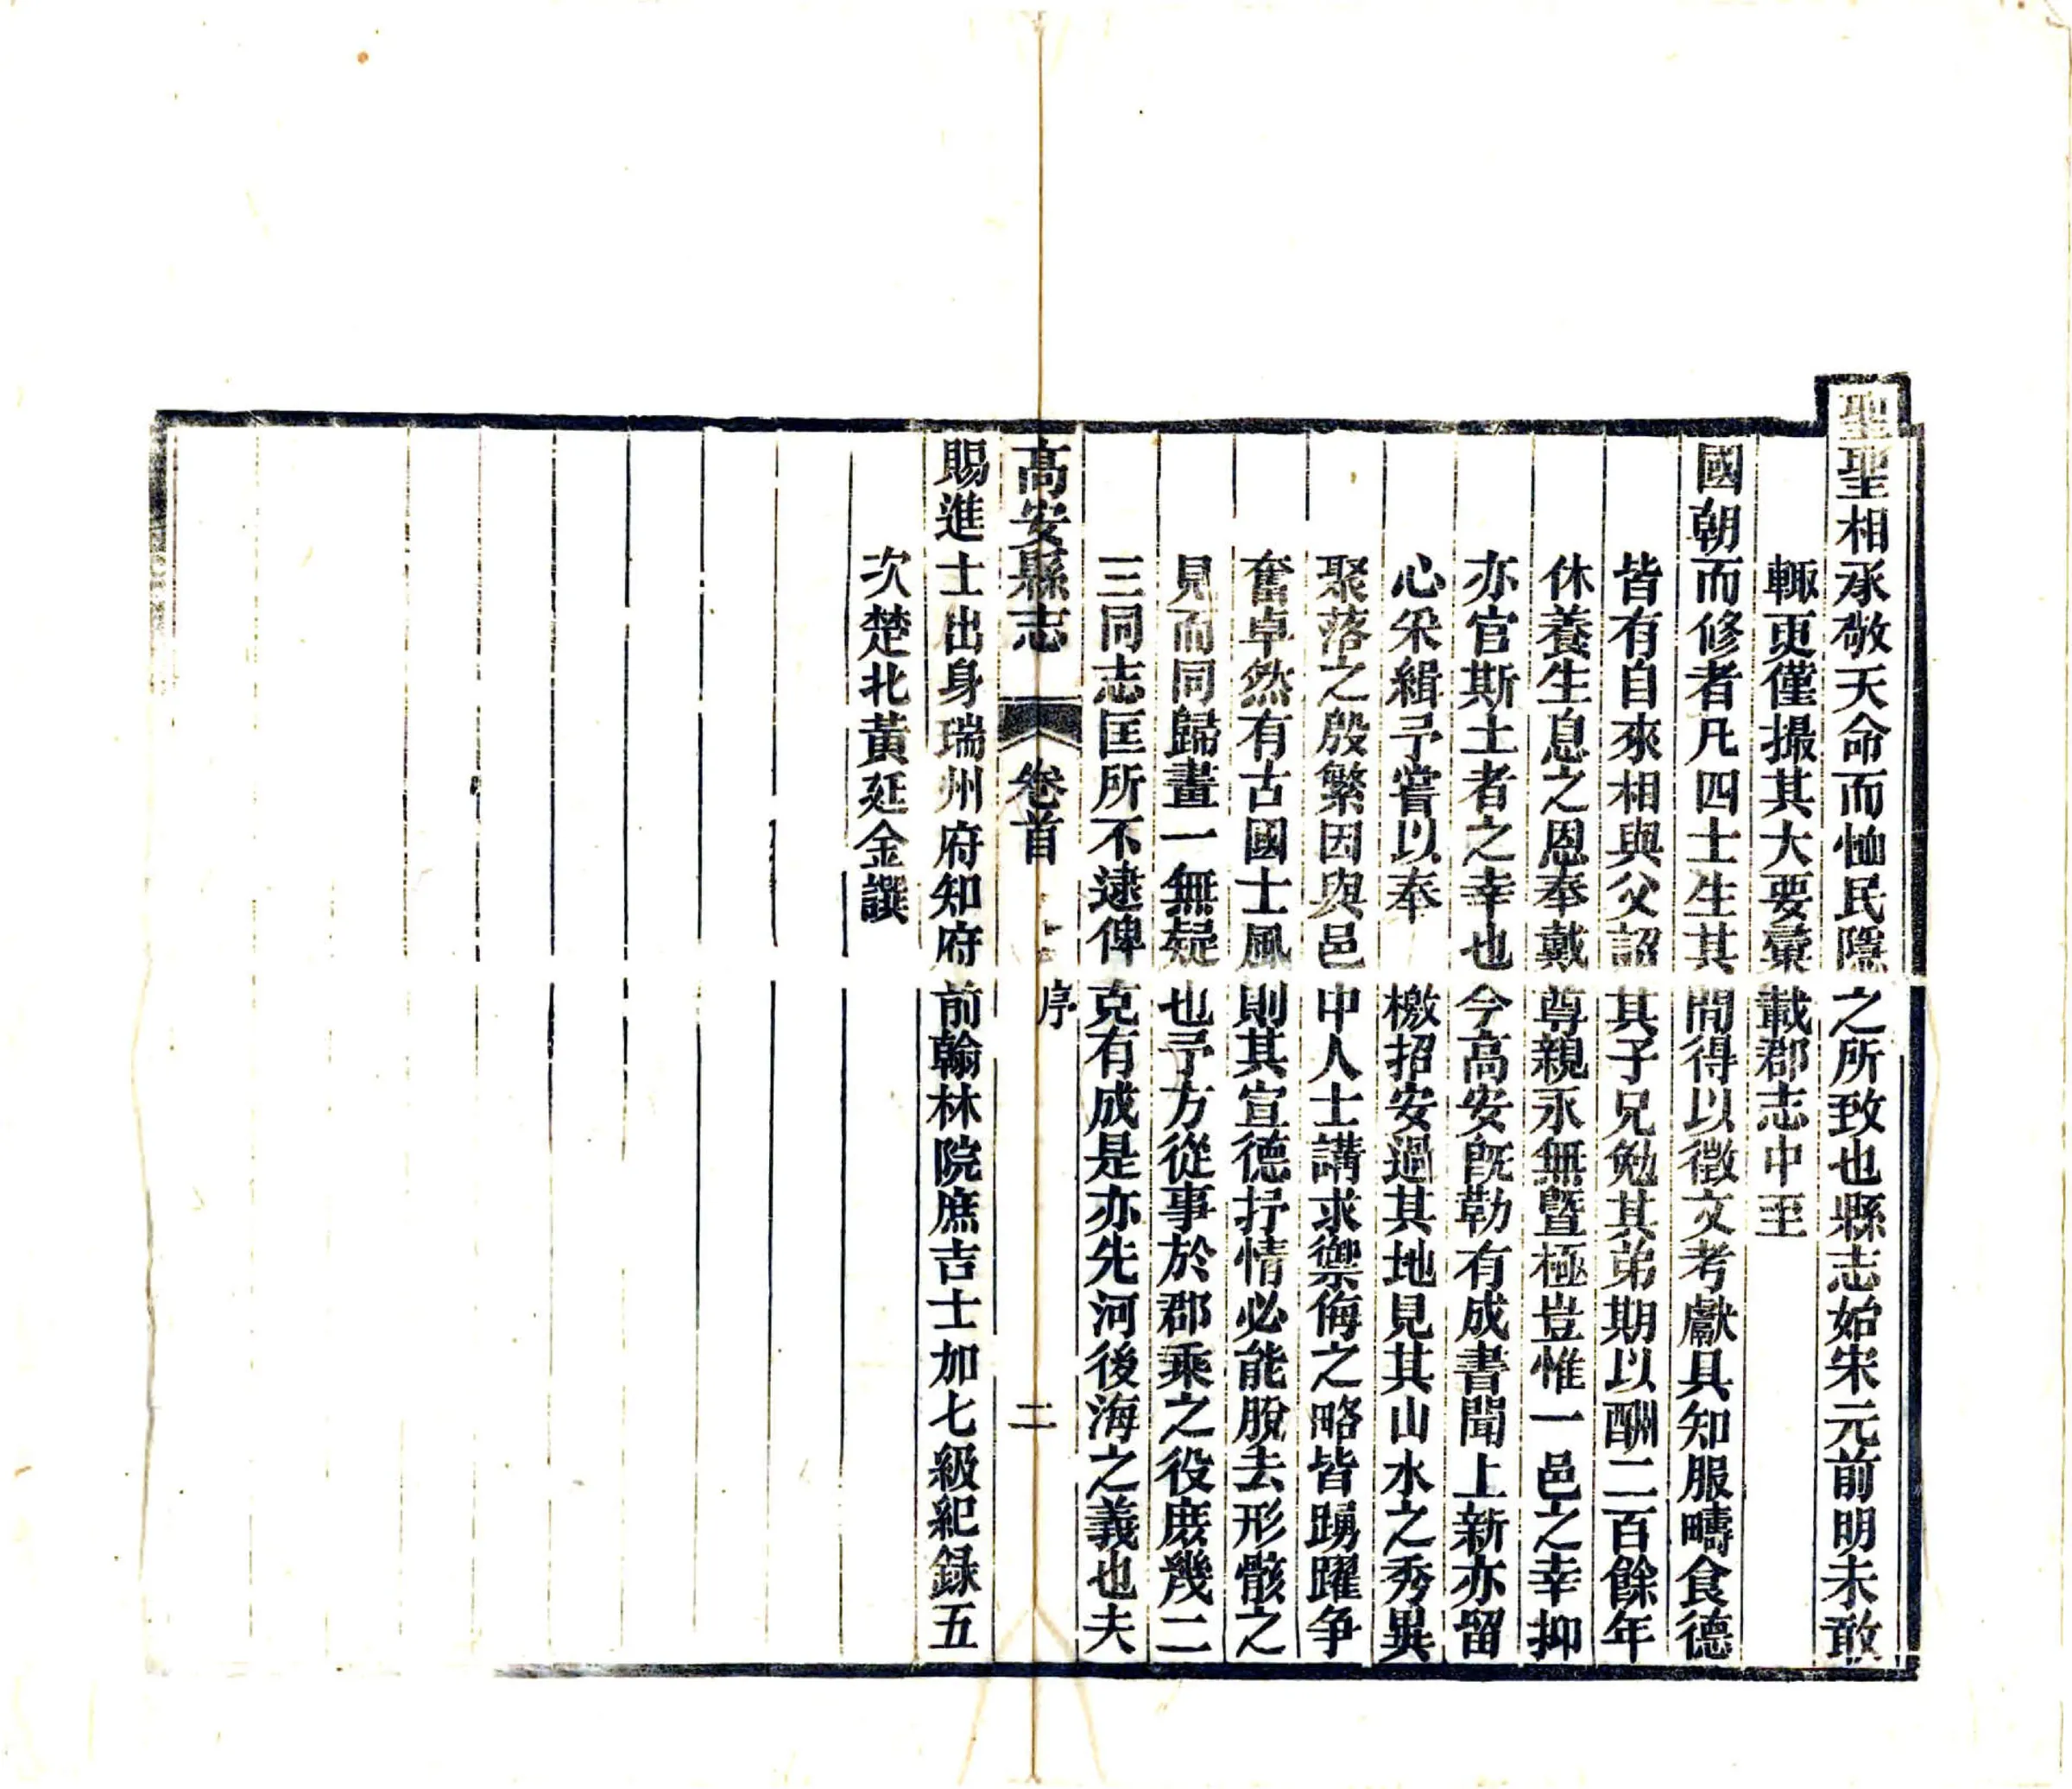 聖聖相承敬天命而恤民隱之所致也縣志始宋元前明未敢
輙更僅撮其大要彙載郡志中至
國朝而修者凡四士生其間得以徵文考獻具知服疇食德
皆有自來相與父詔其子兄勉其弟期以酬二百餘年
休養生息之恩奉戴尊親永無曁極豈惟一邑之幸抑
亦官斯土者之幸也今高安旣勒有成書聞上新亦留
心采緝予嘗以奉檄招安過其地見其山水之秀異
聚落之殷繁因與邑中人士講求禦侮之略皆踴躍争
奮卓然有古國士風則其宣德抒情必能脫去形骸之
見而同歸畫一無疑也予方從事於郡乘之役庶幾二
三同志匡所不逮俾克有成是亦先河後海之義也夫
高安縣志 卷首 序 二
賜進士出身瑞州府知府前翰林院庶吉士加七級紀録五
次楚北黃廷金譔